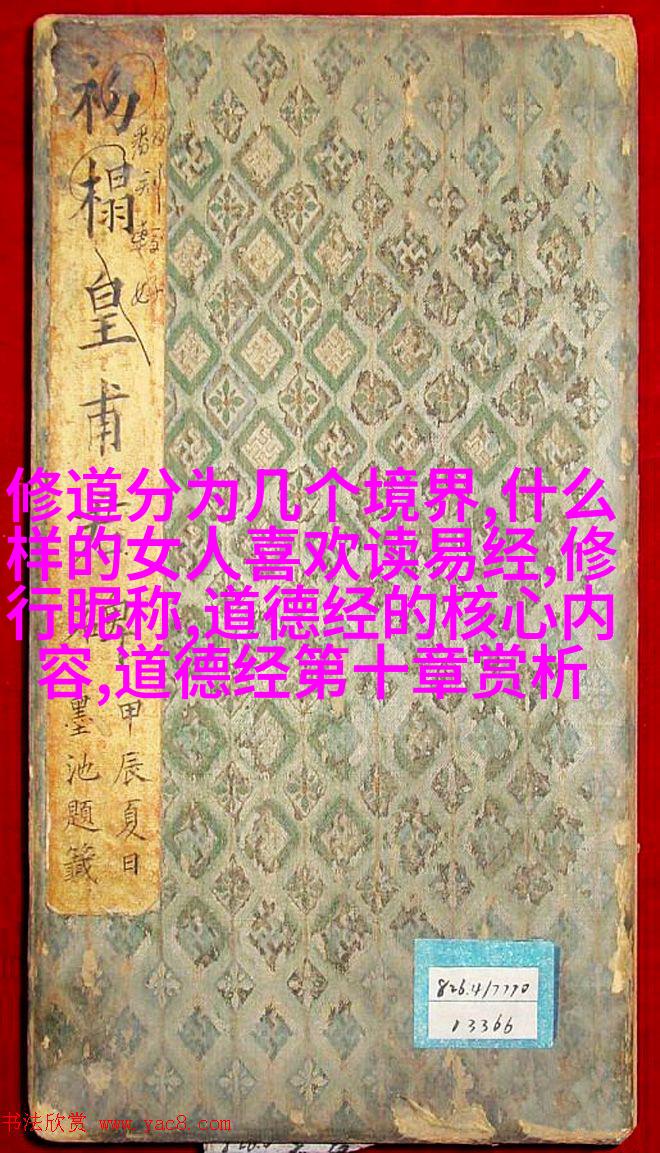 初榻皇甫
甲辰夏日
墨池題籤
修道分为几个境界,什么
样的女人喜欢读易经,修
行昵称,道德经的核心内
容,道德经第十章赏析
826.4/7770
13366
书法欣赏 www.yac8.com